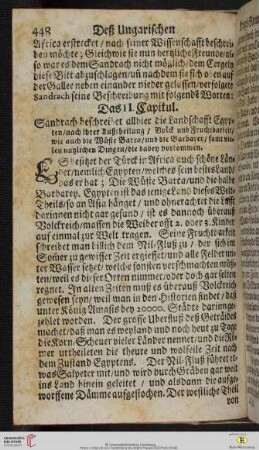 448 Deß Ungarischen
Africa erstrecket / nach seiner Wissenschafft beschrei-
ben möchte; Gleichwie sie nun hertzliche Freunde / al-
so war es dem Sandrach nicht möglich / dem Cergely
diese Bitt abzuschlagen / uñ nachdem sie sich oben auf
der Gallee neben einander nieder gelassen / verfolgete
Sandrach seine Beschreibung mit folgends Worten:
Das II. Capitul.
Sandrach beschreibet allhier die Landschafft Egyp-
ten / nach ihrer Außtheilung / Volck und Fruchtbarkeit /
wie auch die Wüste Barca / und die Barbarey / samt vie-
len nutzlichen Dingen / die dabey vorkommen.
ES besitzet der Türck in Africa auch schöne Län-
der / nemlich Egypten / welches sein bestes Land
das er hat; Die Wüste Barca / und die halbe
Barbarey. Egypten ist das jenige Land dieses Welt-
Theils / so an Asia hänget / und ohnerachtet die Lufft
darinnen nicht gar gesund / ist es dannoch überauß
Volckreich / massen die Weiber offt 2. oder 3. Kinder
auf einmal zur Welt tragen. Seine Fruchtbarkeit
schreibet man billich dem Nil-Fluß zu / der sich im
Somer zu gewisser Zeit ergiesset / und alle Felder un-
ter Wasser setzet / welche sonsten verschmachten müs-
ten / weil es die ser Orten nimmer / oder doch gar selten
regnet. In alten Zeiten muß es überauß Volckreich
gewesen seyn / weil man in den Historien findet / daß
unter König Amasis bey 20000. Städte darinn ge-
zehlet worden. Der grosse Uberfluß deß Getraides
machet / daß man es weyland und noch heut zu Tage
die Korn-Scheuer vieler Länder nennet / und die Rö-
mer urtheileten die theure und wolfeile Zeit nach
dem Zustand Egyptens. Der Nil-Fluß führet et-
was Salpeter mit / und wird durch Gräben gar weit
ins Land hinein geleitet / und alsdann die aufge-
worffene Dämme aufgestochen. Der westliche Theil
von